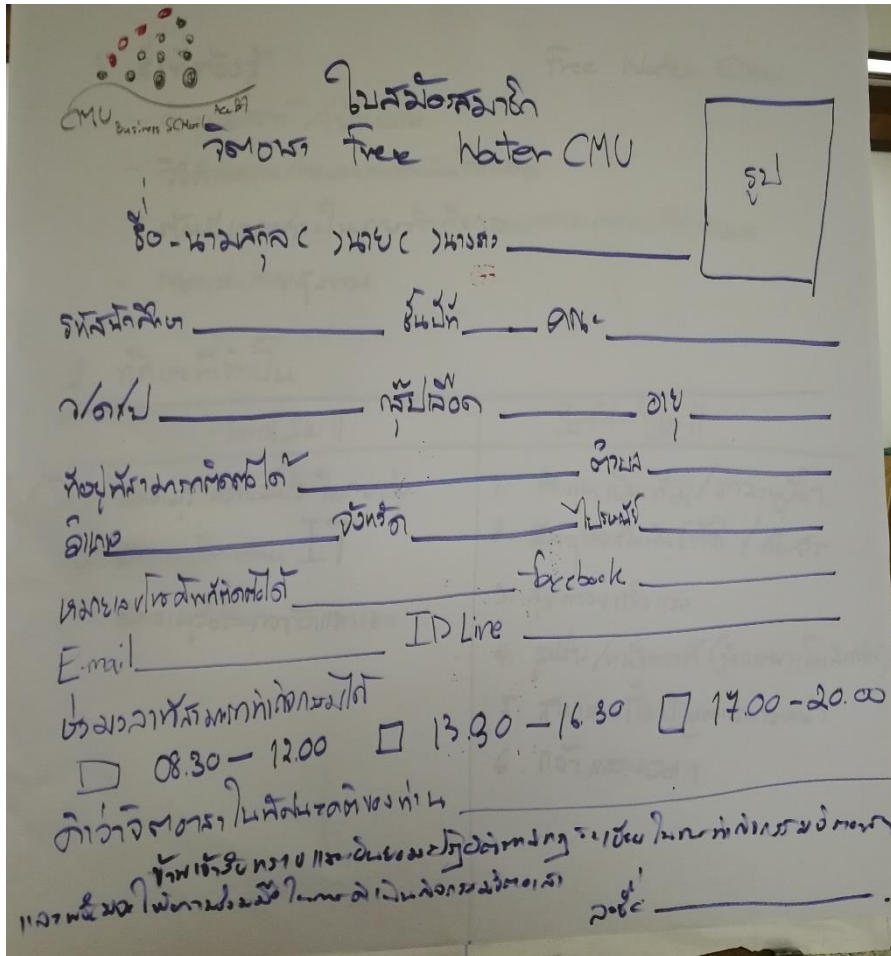 CMU Business School AccBA
ใบสมัครสมาชิก
จิตอาสา Free Water CMU
รูป
ชื่อ-นามสกุล ( ) นาย ( ) นางสาว
รหัสนักศึกษา ชั้นปีที่ คณะ
ว/ด/ป กรุ๊ปเลือด อายุ
ที่อยู่ที่สามารถติดต่อได้ ตำบล
อำเภอ จังหวัด ไปรษณีย์
หมายเลขโทรศัพท์ติดต่อได้ facebook
E-mail ID Line
ช่วงเวลาที่สามารถทำกิจกรรมได้
08.30 - 12.00 13.30 - 16.30 17.00 - 20.00
คำว่าจิตอาสาในทัศนะคติของท่าน
ข้าพเจ้ารับทราบและยินยอมปฏิบัติตามกฎระเบียบในการทำกิจกรรมจิตอาสา
และพร้อมจะให้ความร่วมมือในการดำเนินกิจกรรมจิตอาสา
ลงชื่อ